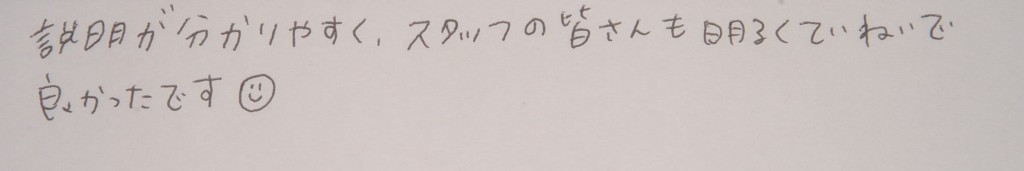 説明が分かりやすく、スタッフの皆さんも明るくていねいで
良かったです☺